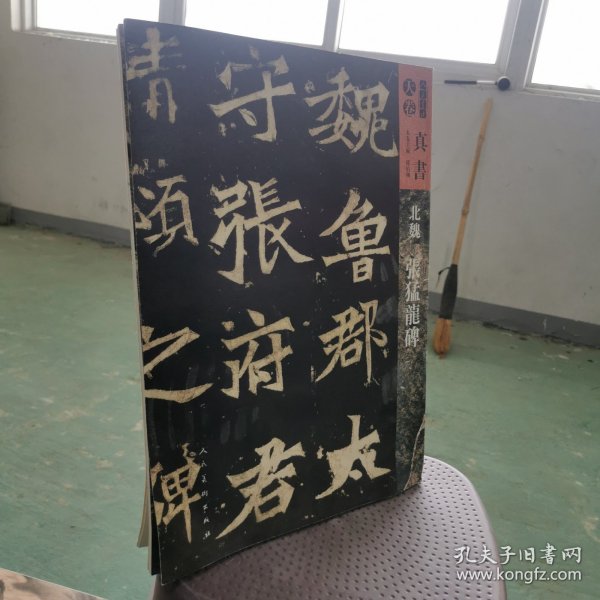 魏魯郡太
守張府君
清頌之碑
人民美術出版社
天卷
真書
北魏 張猛龍碑
孔夫子旧书网
www.kongfz.com